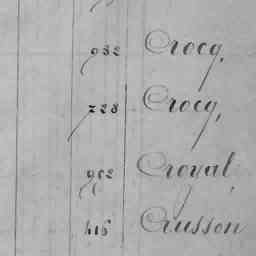 932 Crocq,
728 Crocq,
902 Croyal,
416 Crusson